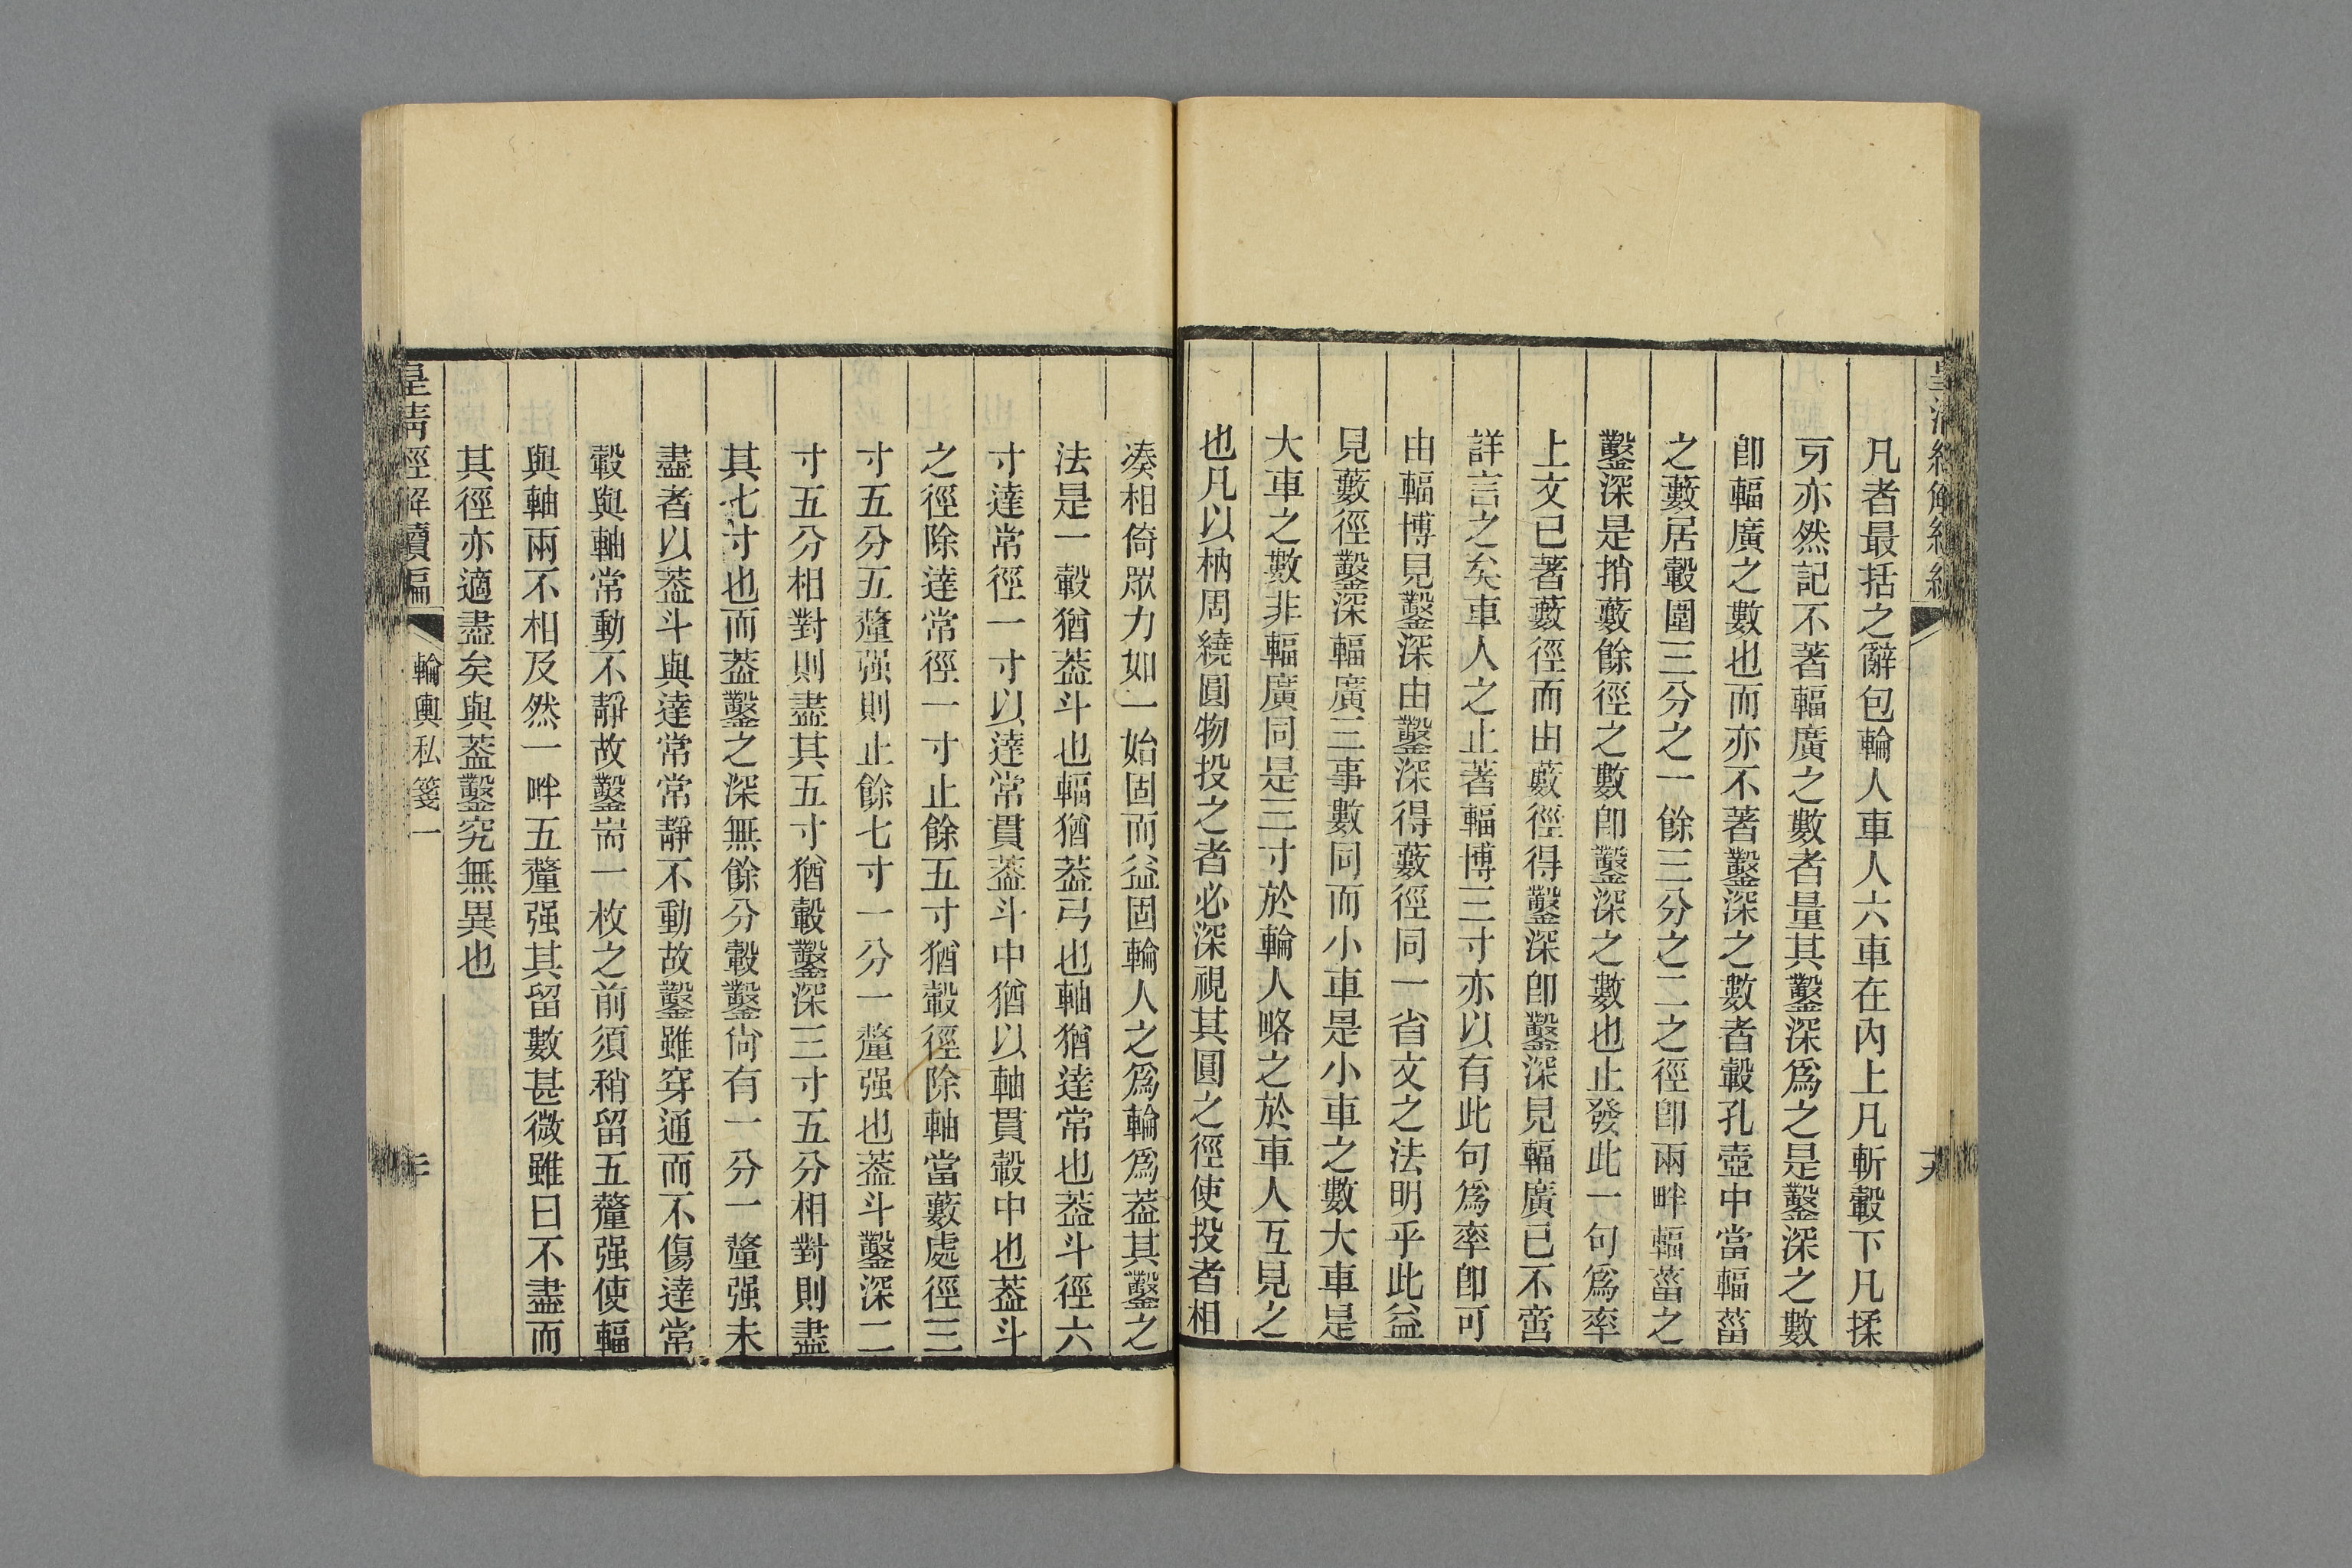 凡者最括之辭包輪人車人六車在內上凡斬轂下凡揉
牙亦然記不著輻廣之數者量其鑿深爲之是鑿深之數
卽輻廣之數也而亦不著鑿深之數者轂孔壺中當輻菑
之藪居轂圍三分之一餘三分之二之徑卽兩畔輻菑之
鑿深是捎藪餘徑之數卽鑿深之數也止發此一句爲率
上文已著藪徑而由藪徑得鑿深卽鑿深見輻廣已不啻
詳言之矣車人之止著輻博三寸亦以有此句爲率卽可
由輻博見鑿深由鑿深得藪徑同一省文之法明乎此益
見藪徑鑿深輻廣三事數同而小車是小車之數大車是
大車之數非輻廣同是三寸於輪人略之於車人互見之
也凡以枘周繞圓物投之者必深視其圓之徑使投者相
湊相倚眾力如一始固而益固輪人之爲輪爲葢其鑿之
法是一轂猶葢斗也輻猶葢弓也軸猶達常也葢斗徑六
寸達常徑一寸以達常貫葢斗中猶以軸貫轂中也葢斗
之徑除達常徑一寸止餘五寸猶轂徑除軸當藪處徑三
寸五分五釐强則止餘七寸一分一釐强也葢斗鑿深二
寸五分相對則盡其五寸猶轂鑿深三寸五分相對則盡
其七寸也而葢鑿之深無餘分轂鑿尙有一分一釐强未
盡者以葢斗與達常常靜不動故鑿雖穿通而不傷達常
轂與軸常動不靜故鑿耑一枚之前須稍留五釐强使輻
與軸兩不相及然一畔五釐强其留數甚微雖曰不盡而
其徑亦適盡矣與葢鑿究無異也
皇清經解續編
輪輿私箋一